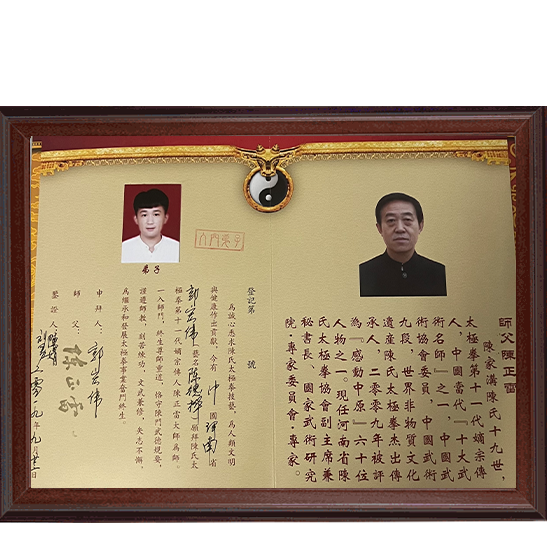 師父陳正雷
陳家溝陳氏十九世，
太極拳第十一代嫡宗傳
人，中國當代『十大武
術名師』之一，中國武
術協會委員，中國武術
九段，世界非物質文化
遺産陳氏太極拳杰出傳
承人，二零零九年被評
為『感動中原』六十位
人物之一。現任河南省陳
氏太極拳協會副主席兼
秘書長、國家武術研究
院·專家委員會·專家。
弟子
登記第 號
為誠心悉求陳氏太極拳技藝，爲人類文明
與健康作出貢獻，今有 中 國 河南 省
郭宏偉 藝名 陳德 願拜陳氏太
極拳第十一代嫡宗傳人陳正雷大師爲師。
一入師門，終生尊師重道，恪守陳門武德規要，
謹遵師教，刻苦練功，文武兼修，矢志不懈，
爲繼承和發展太極拳事業奮鬥終生
申拜人：郭宏偉
師父：陳正雷
鑒證人：
二零一九年九月